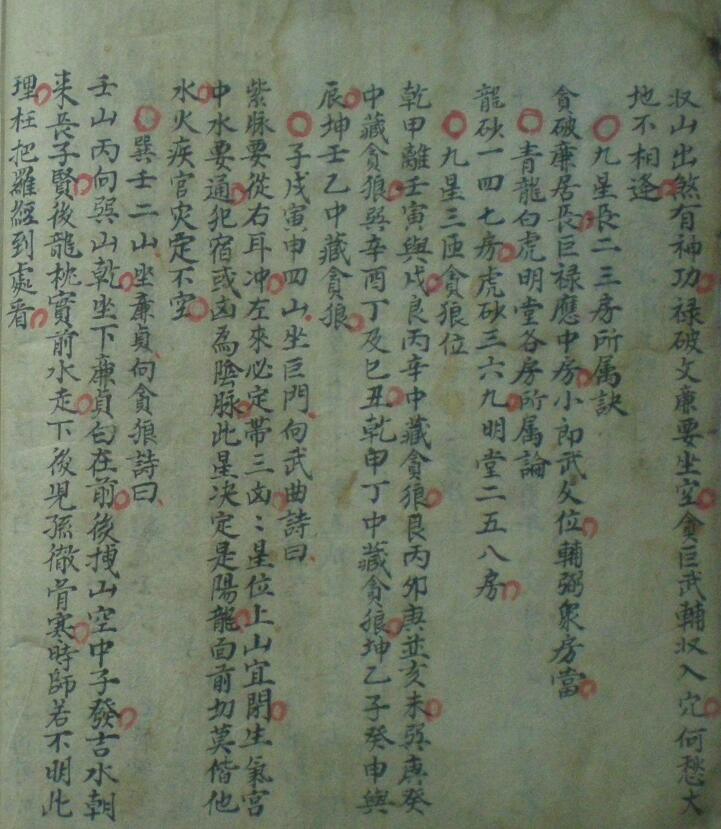 収山出煞有神功禄破文廉要坐空貪巨武輔収入穴何愁大
地不相逢
九星長二三房所属訣
貪破廉居長巨禄應中房小郎武文位輔弼衆房當
青龍白虎明堂各房所属論
龍砂一四七房虎砂三六九明堂二五八房
九星三匝貪狼位
乾甲離壬寅與戊艮丙辛中藏貪狼艮丙夘庚並亥未巽庚癸
中藏貪狼巽辛酉丁及巳丑乾甲丁中藏貪狼坤乙子癸申與
辰坤壬乙中藏貪狼
子戌寅申四山坐巨門向武曲詩曰
紫脉要從右耳冲左來必定帶三凶〻星位上山宜開生氣宮
中水要通犯宿或凶為陰脉此星决定是陽龍面前切莫偕他
水火疾官灾定不空
巽壬二山坐廉貞向貪狼詩曰
壬山丙向巽山乾坐下廉貞白在前後摶山空中子發吉水朝
来長子賢後龍枕實前水走下後児孫徹骨寒時師若不明此
理枉把羅經到處看